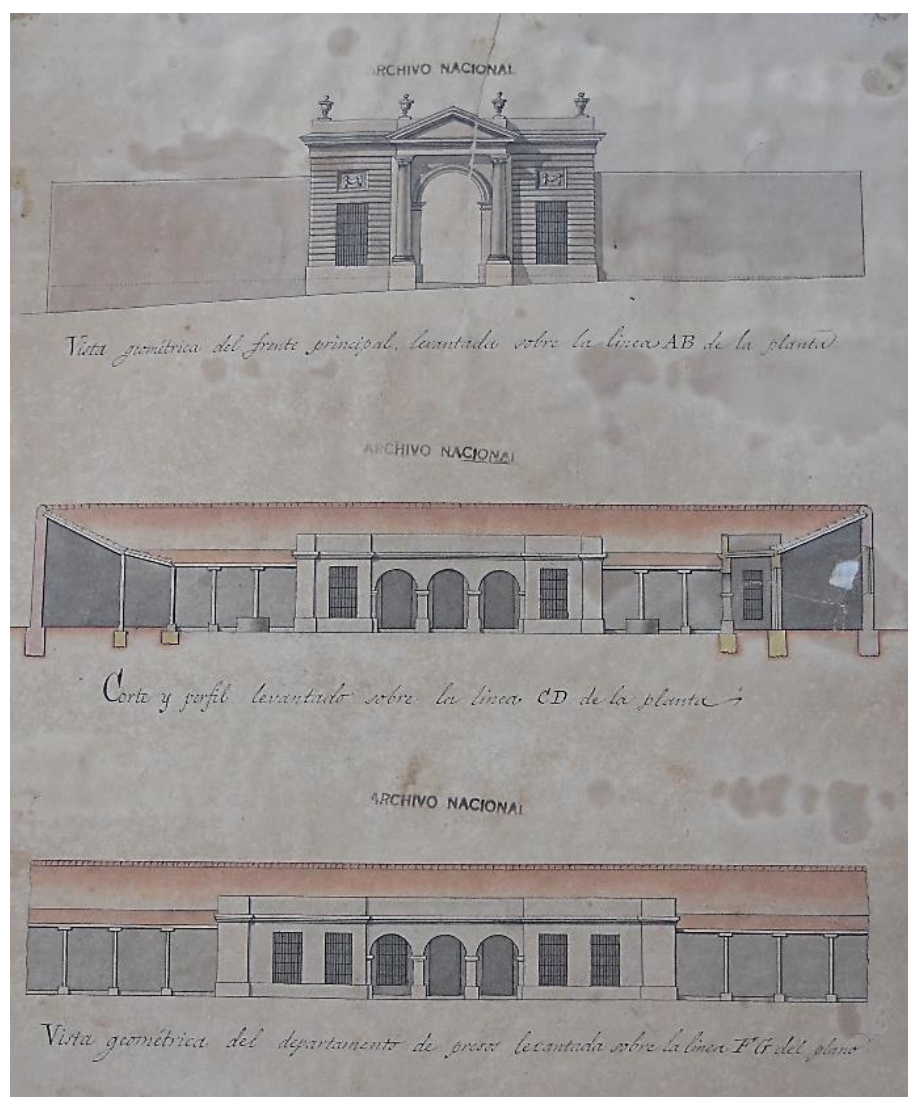 ARCHIVO NACIONAL
Vista geométrica del frente principal, levantada sobre la linea AB de la planta
ARCHIVO NACIONAL
Corte y perfil levantado sobre la linea CD de la planta
ARCHIVO NACIONAL
Vista geométrica del departamento de presos levantada sobre la linea FG del plano